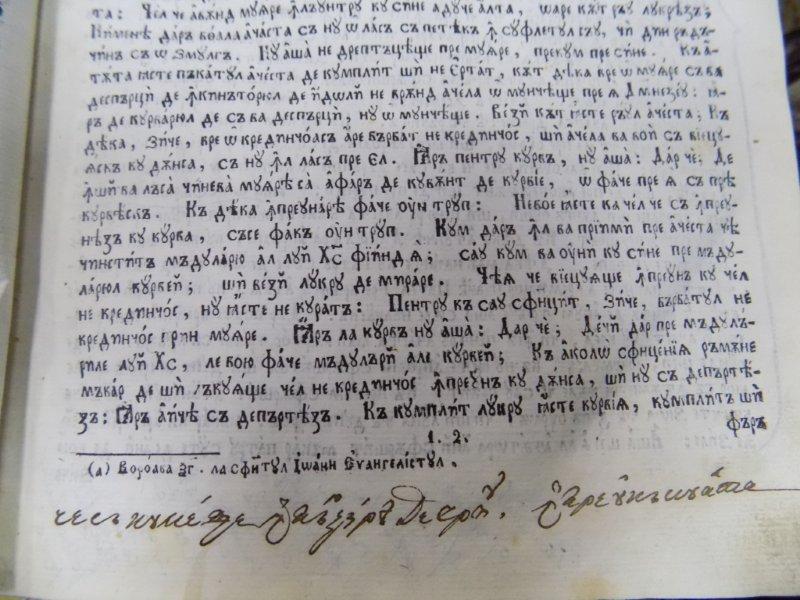 та: Чел че авѫнд мꙋяре ꙟлъꙋнтрꙋ кꙋ сине адꙋче алта, ѡаре кѫт ръꙋ лꙋкрѣзъ;
дар боала ачаста съ нꙋ ѡ ласъ съ петѣкъ ꙟ сꙋфлетꙋл съꙋ, чи дин ръдъ-
чинъ съ ѡ змꙋлгъ. Кꙋ аша не дрептъцѣще пре мꙋяре, прекꙋм пре сине. Къ а-
тѫта ꙗсте пъкатꙋл ачеста де кꙋмплит ши не ертат, кѫт дѣка вре ѡ мꙋяре съ ва
деспърци де ꙟкинъторюл де идѡли не врѫнд ачела ѡ мꙋнчѣще пре я Дмнезеꙋ: ꙗ-
ръ де кꙋрварюл де съ ва деспърци, нꙋ ѡ мꙋнчѣще. Вези кѫт ꙗсте ръꙋл ачеста; Къ
дѣка, зиче, вре ѡ крединчоасъ аре бърбат не крединчос, ши ачела ва вои съ вꙗцꙋ-
ꙗскъ кꙋ дѫнса, съ нꙋ ꙟл ласъ пре ел. Ꙗръ пентрꙋ кꙋрвъ, нꙋ аша: Дар че; Де
ꙟши ва лъса чинева мꙋярѣ са афаръ де кꙋвѫнт де кꙋрвіе, ѡ фаче пре я съ прѣ
кꙋрвѣскъ. Къ дѣка ꙟпреꙋнаре фаче ꙋн трꙋп: Невое ꙗсте ка чел че съ ꙟпреꙋ-
нѣзъ кꙋ кꙋрва, съ се факъ ꙋн трꙋп. Кꙋм дар ꙟл ваприими пре ачеста чѣ
чинстит мъдꙋларю ал лꙋи Хс фиинд я; саꙋ кꙋм ва ꙋни кꙋ сине пре мъдꙋ-
ларюл кꙋрвей; ши вези лꙋкрꙋ де мираре. Чѣя че віецꙋяще ꙟпреꙋнъ кꙋ чел
не крединчос, нꙋ ꙗсте не кꙋратъ: Пентрꙋ къ саꙋ сфинцит, зиче, бърбатꙋл не
крединчос прин мꙋяре. Ꙗръ ла кꙋрвъ нꙋ аша: Дар че; Дечи дар пре мъдꙋлъ-
риле лꙋи Хс, ле вою фаче мъдꙋлъри але кꙋрвей; Къ аколѡ сфинценія ръмѫне
мъкар де ши лъкꙋяще чел не крединчос ꙟпреꙋнъ кꙋ дѫнса, ши нꙋ съ депъртѣ-
зъ: Ꙗръ аиче съ депъртѣзъ. Къ кꙋмплит лꙋкрꙋ ꙗсте кꙋрвія, кꙋмплит ши
1. 2. фъръ
(а) Вороава ѯг. ла сфинтꙋл Іѡанн Еѵангелистꙋл.